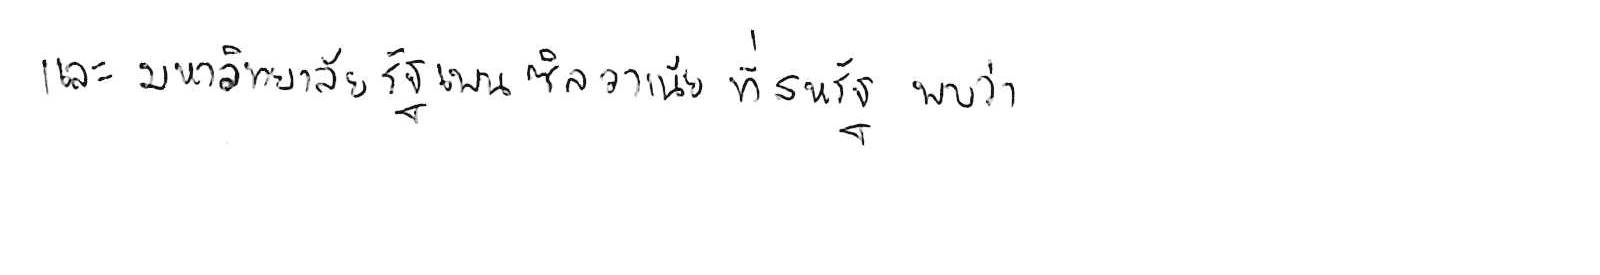 และ มหาวิทยาลัย รัฐเพนซิลวาเนีย ที่ สหรัฐ พบว่า